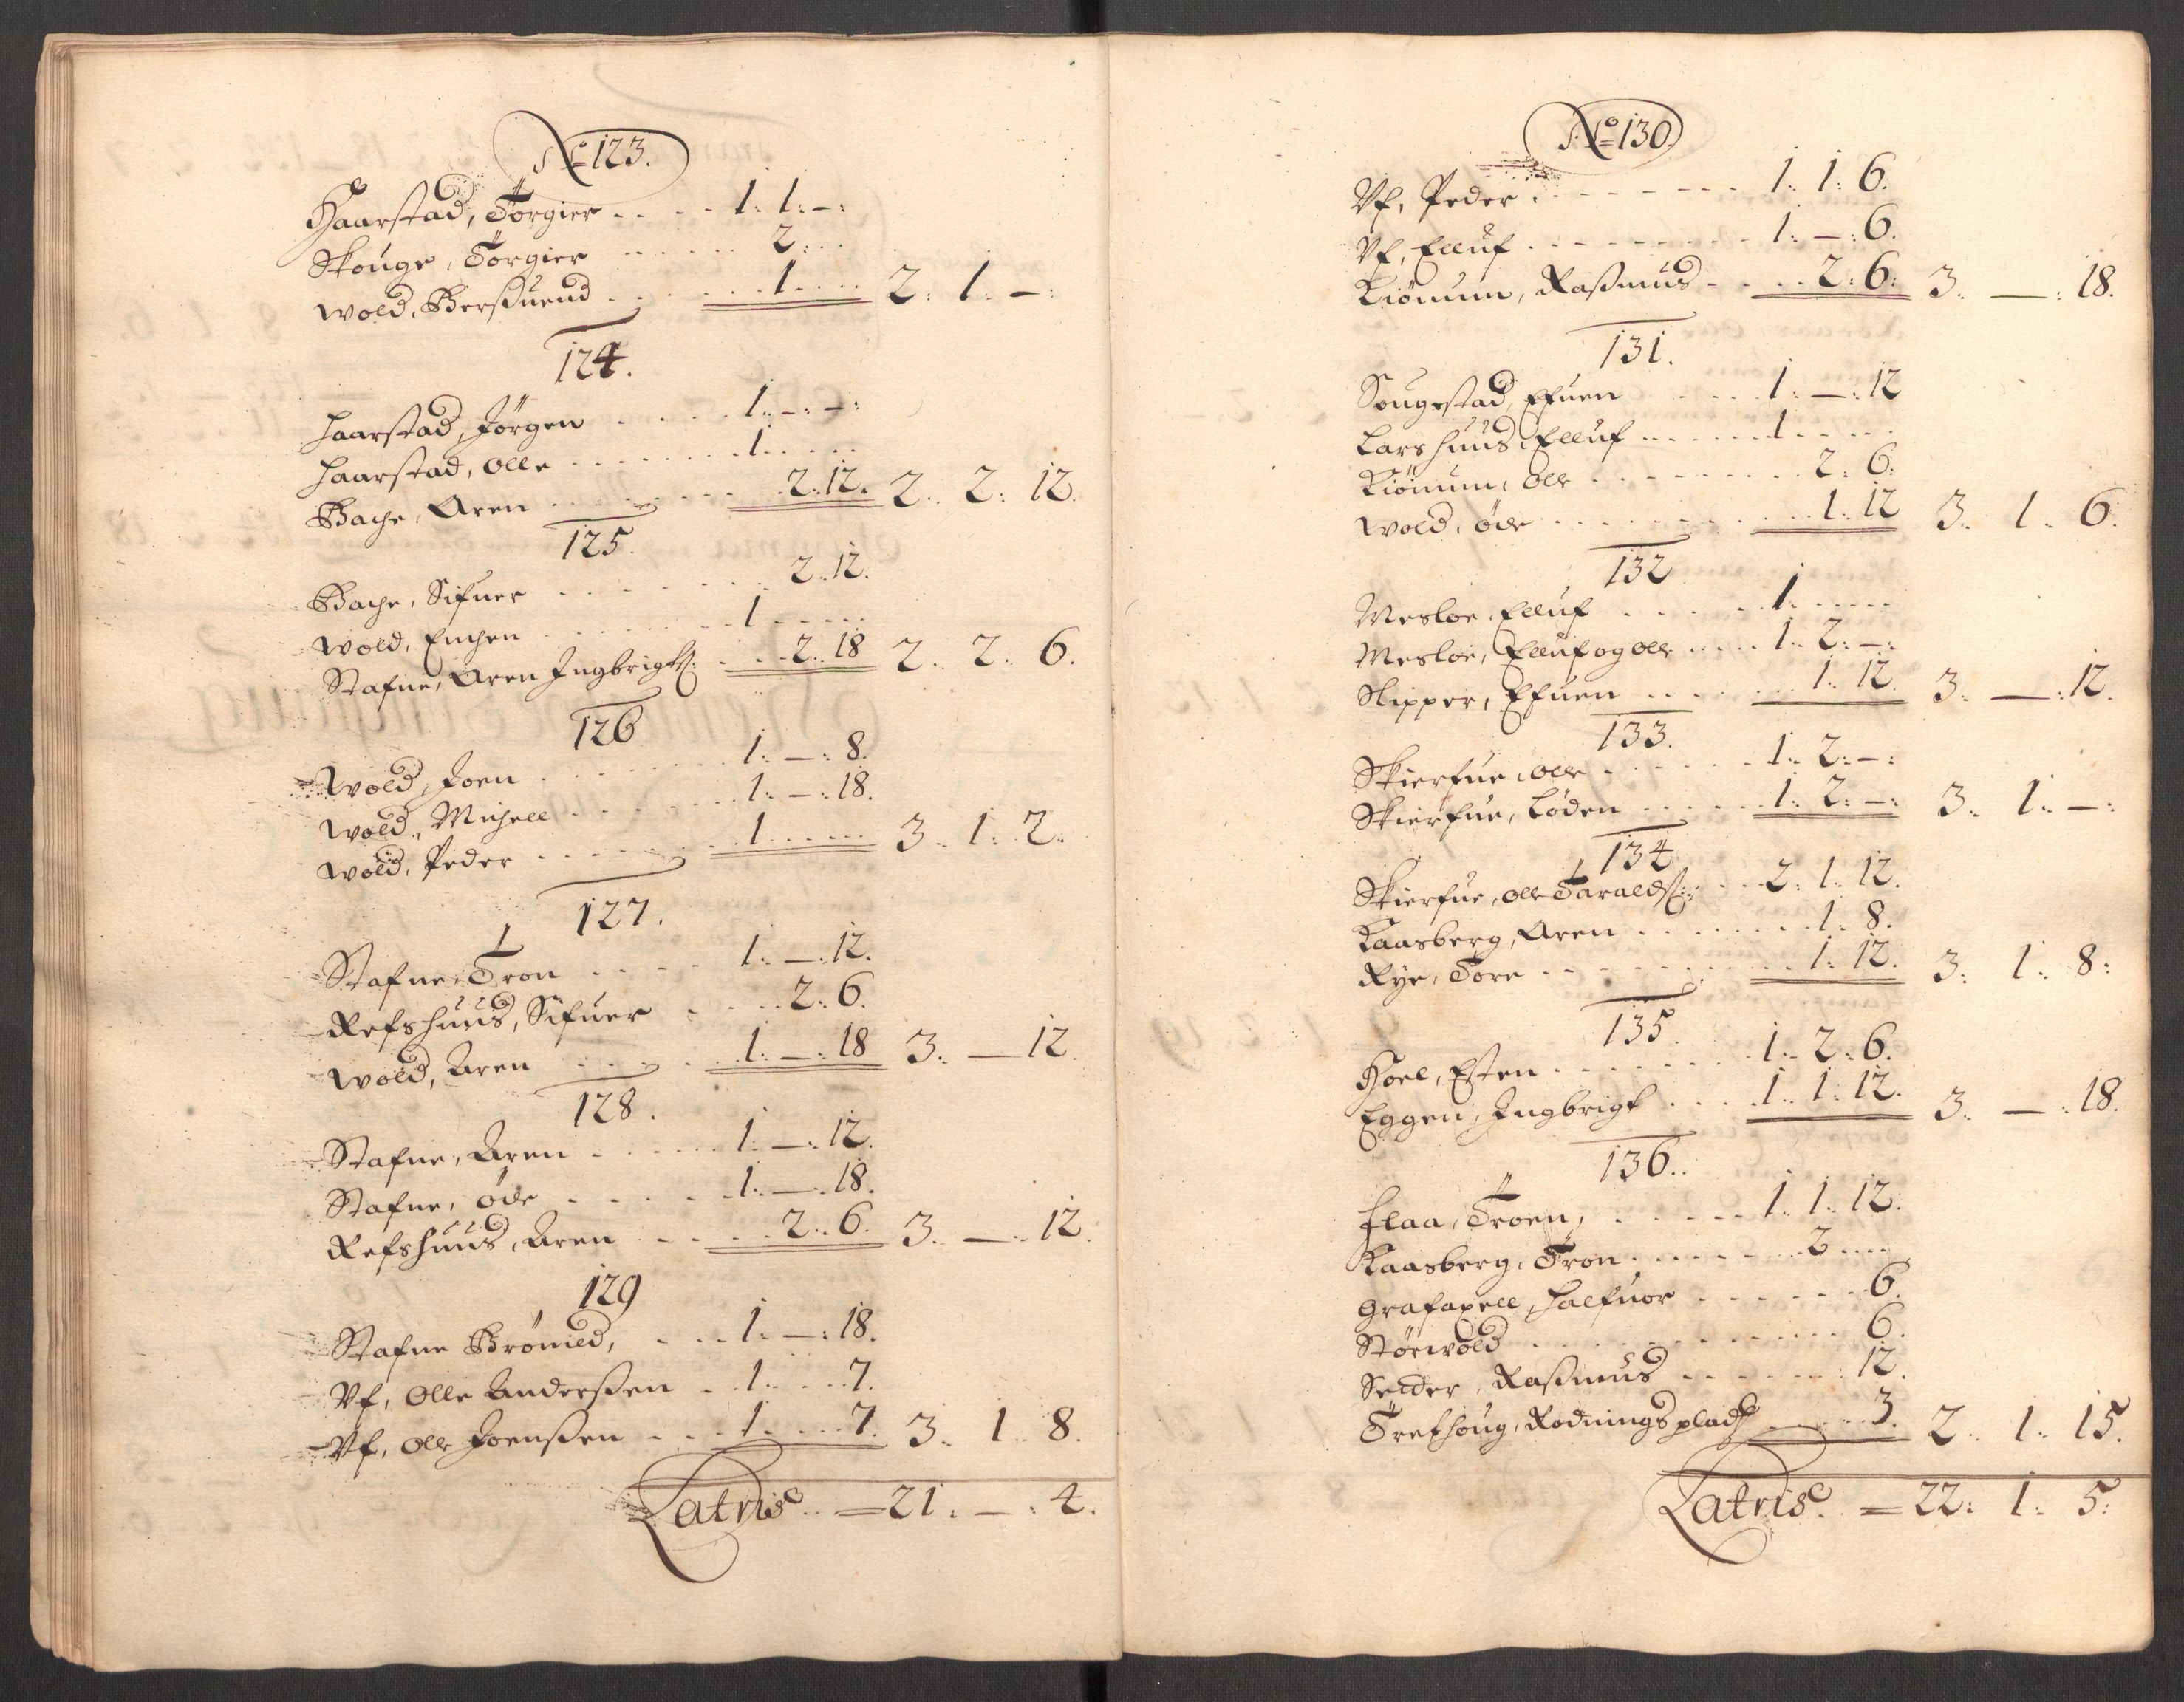 No 123.
Haarstad, Törgier .... 1: 1: –:
Skouge, Törgier ...... 2: ..
Wold, Berssuend ...... 1 .... 2: 1: –:
124.
Haarstad, Jörgen .... 1: –: –:
Haarstad, Olle ....... 1 ....
Bache, Aren ....... 2: 12. 2: 2: 12.
125.
Bache, Sifuer ....... 2: 12.
Wold, Enchen ....... 1 ....
Stafne, Aren Ingbrigts: ... 2: 18 2: 2: 6.
126
Wold, Joen ....... 1: –: 8.
Wold, Michell ...... 1: –: 18.
Wold, Peder ....... 1 .... 3: 1: 2:
127.
Stafne, Tron .... 1: –: 12.
Refshuus, Sifuer .... 2: 6.
Wold, Aren ..... 1: –: 18 3: – 12.
128.
Stafne, Aren ..... 1: –: 12.
Stafne, öde ..... 1: –: 18.
Refshuus, Aren .... 2: 6. 3: –: 12.
129
Stafne Brönild, ... 1: –: 18.
Vf, Olle Anderssen . 1: .. 7.
Vf, Olle Joenssen ... 1: ... 7. 3: 1: 8.
Latris = 21: –: 4.
No 130.
Vf, Peder ....... 1: 1: 6.
Vf, Elluf ....... 1: –: 6.
Kiönum, Rassmus .... 2: 6: 3: –: 18.
131.
Sougestad, Efuen .... 1: –: 12
Larshuus, Elluf ...... 1 ....
Kiönum, Olle ........ 2: 6:
Wold, öde ......... 1: 12 3: 1: 6.
132
Mesloe, Elluf ..... 1 .....
Mesloe, Elluf og Olle .... 1: 2: –:
Slipper, Efuen ...... 1: 12. 3: –: 12.
133.
Skierfue, Olle ...... 1: 2: –:
Skierfue, Löden ...... 1: 2: –: 3: 1: –:
134
Skierfue, Olle Taralds: ... 2: 1: 12.
Kaasberg, Aren ....... 1: 8.
Rye, Tore ......... 1: 12. 3: 1: 8:
135.
Hoel, Esten ....... 1: 2: 6.
Eggen, Ingbrigt ... 1: 1: 12. 3: –: 18.
136.
Flaa, Troen, ..... 1: 1: 12.
Kaasberg, Tron ...... 2 ....
Grafaxell, Halfuor ...... 6.
Störwold ............ 6.
Selder, Rassmus ...... 12.
Trethoug, Rodnings plads ... 3. 2: 1: 15.
Latris = 22: 1: 5: